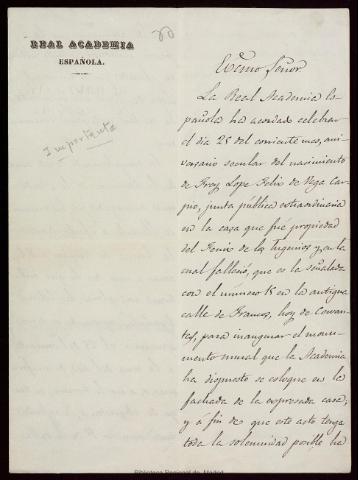 REAL ACADEMIA
ESPAÑOLA.
Importante
Excmo Señor
La Real Academia Es-
pañola ha acordado celebrar
el dia 25 del corriente mes, ani-
versario secular del nacimiento
de Frey Lope Felix de Vega Car-
pio, junta pública extraordinaria
en la casa que fué propiedad
del Fenix de los Ingenios y en la
cual falleció, que es la señalada
con el número 15 en la antigua
calle de Francos, hoy de Cervan-
tes, para inaugurar el monu-
mento mural que la Academia
ha dispuesto se coloque en la
fachada de la expresada casa;
y á fin de que este acto tenga
toda la solemnidad posible ha
Biblioteca Regional de Madrid